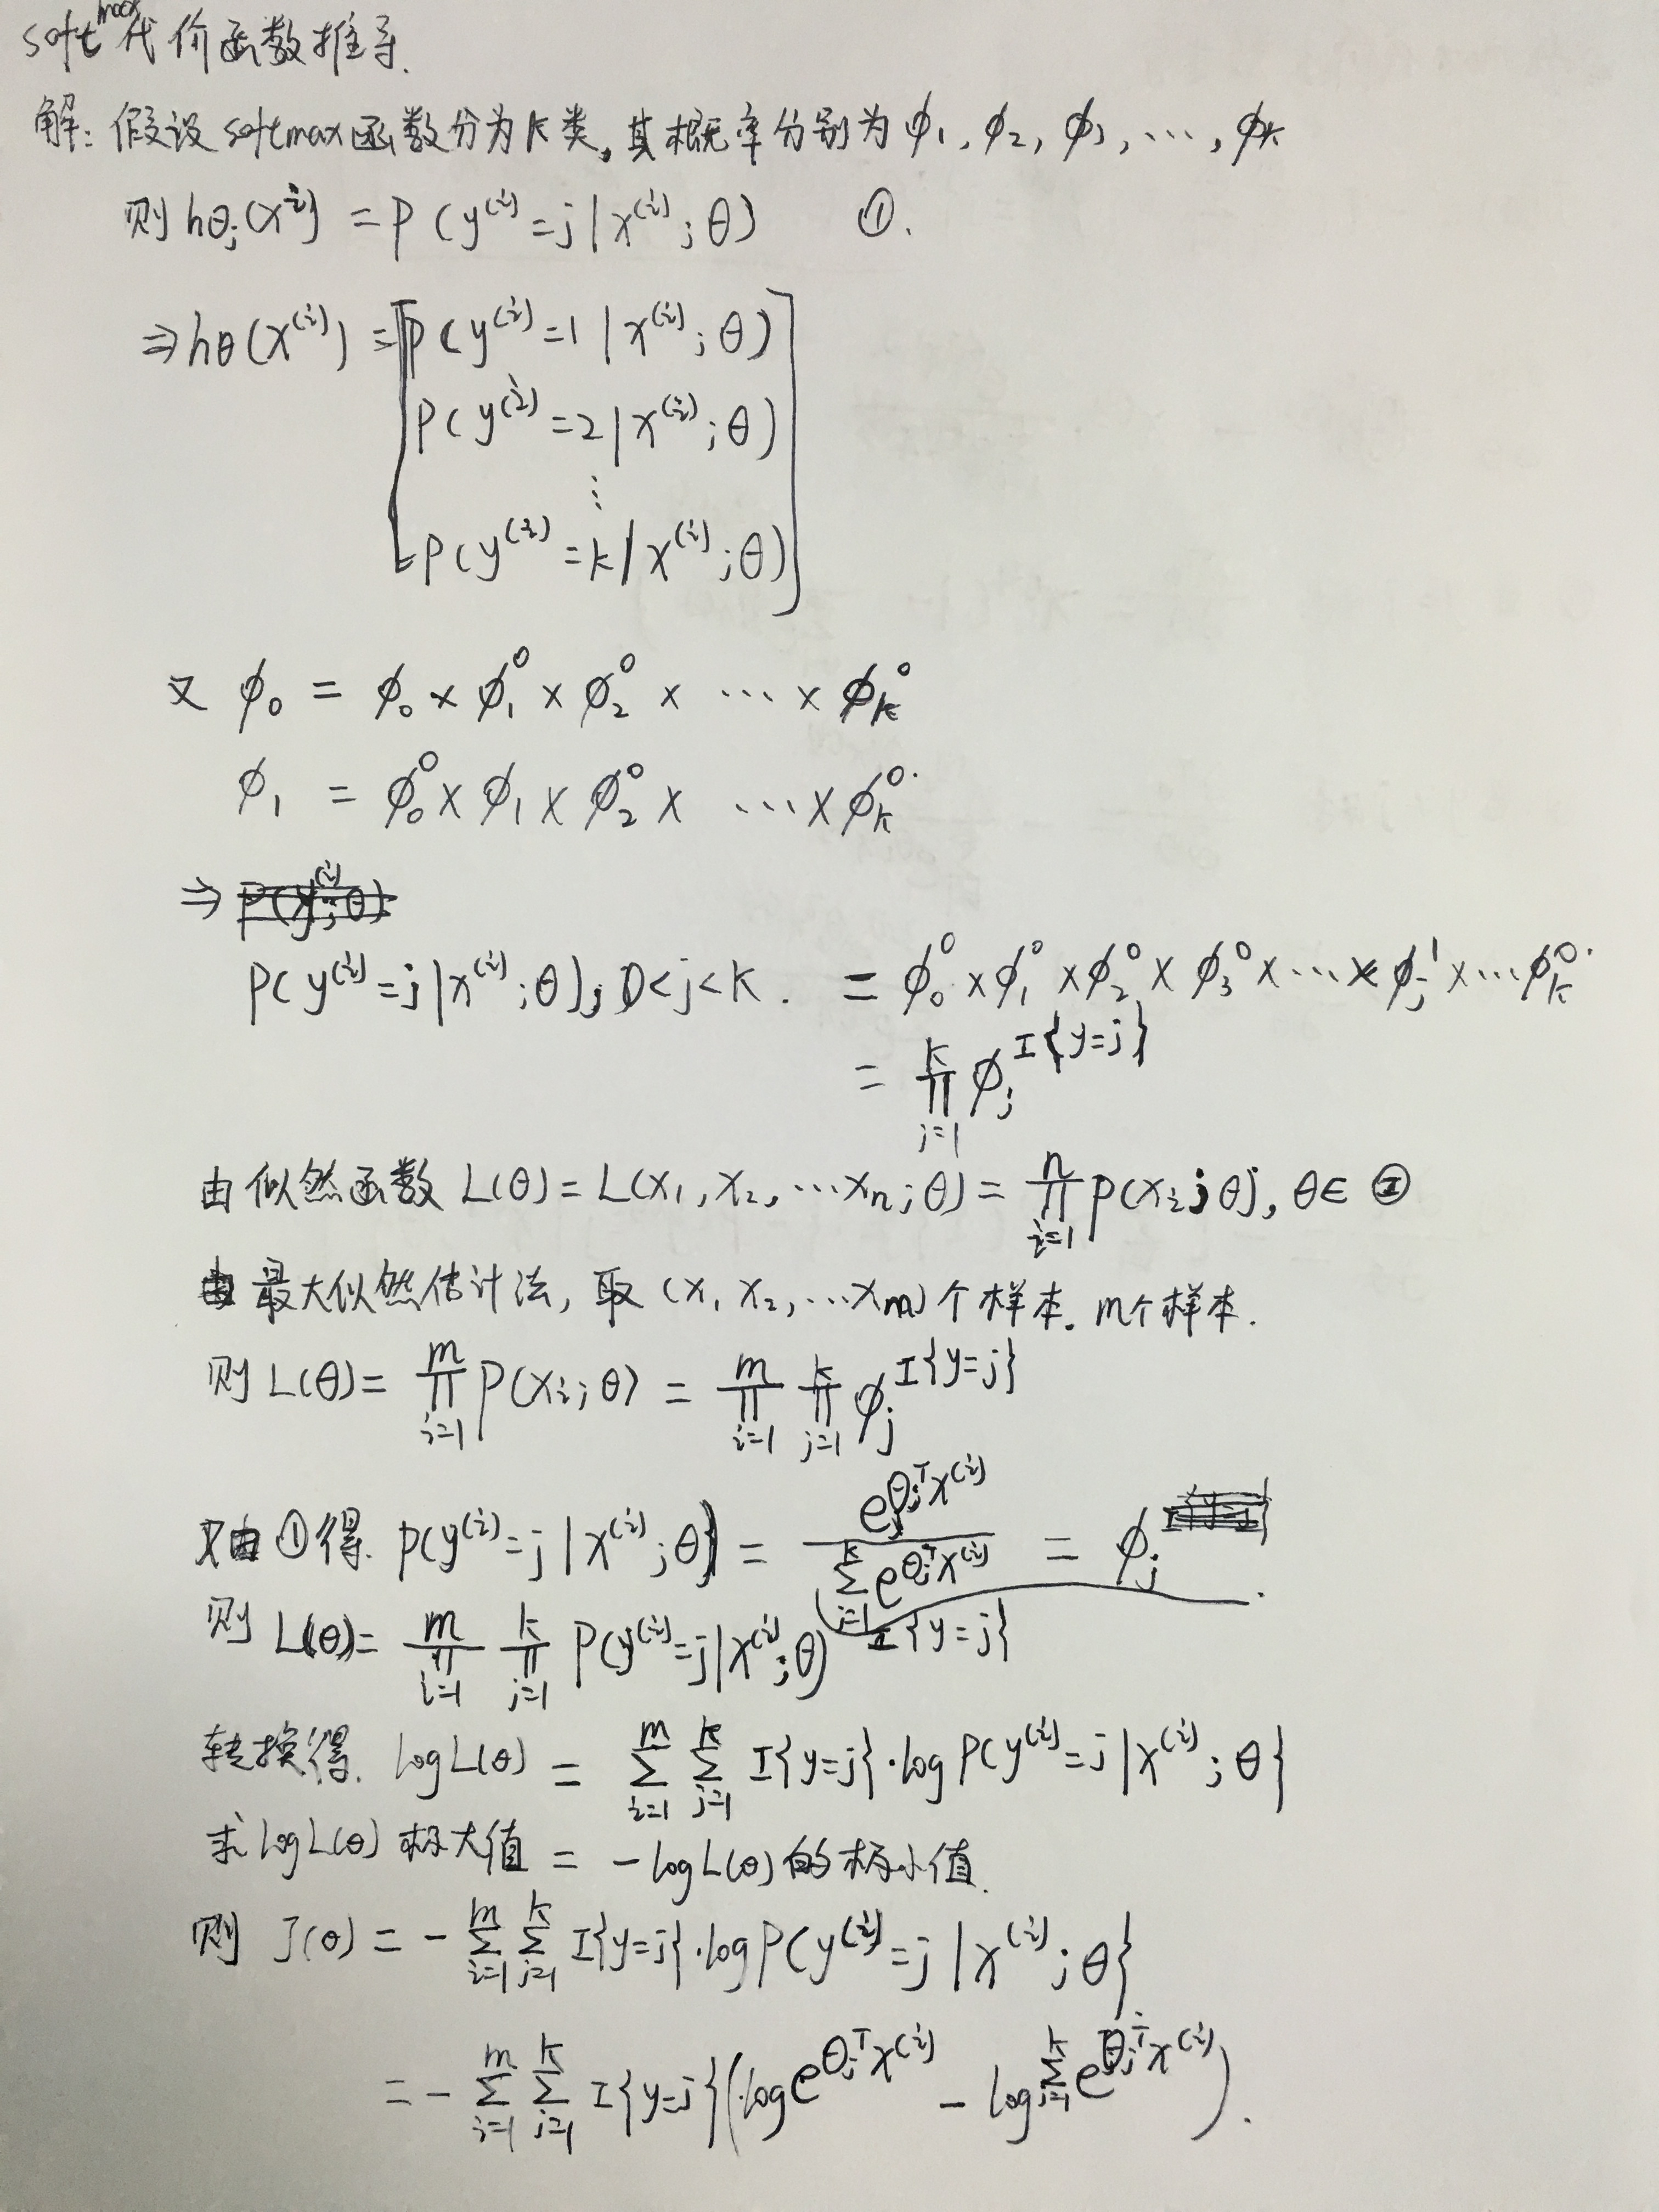 softmax代价函数推导.
解: 假设softmax函数分为k类, 其概率分别为 ϕ₁, ϕ₂, ϕ₃, ⋯, ϕₖ
则 hθⱼ(xⁱ) = P(y⁽ⁱ⁾=j | x⁽ⁱ⁾; θ) ①.
⇒ hθ(x⁽ⁱ⁾) = [P(y⁽ⁱ⁾=1 | x⁽ⁱ⁾; θ)
P(y⁽ⁱ⁾=2 | x⁽ⁱ⁾; θ)
⋮
P(y⁽ⁱ⁾=k | x⁽ⁱ⁾; θ)]
又 ϕ₀ = ϕ₀ × ϕ₁⁰ × ϕ₂⁰ × ⋯ × ϕₖ⁰
ϕ₁ = ϕ₀⁰ × ϕ₁ × ϕ₂⁰ × ⋯ × ϕₖ⁰.
⇒
P(y⁽ⁱ⁾=j | x⁽ⁱ⁾; θ), 0<j<k. = ϕ₀⁰ × ϕ₁⁰ × ϕ₂⁰ × ϕ₃⁰ × ⋯ × ϕⱼ¹ × ⋯ ϕₖ⁰.
= ∏_{j=1}^{k} ϕⱼ^{I{y=j}}
由似然函数 L(θ) = L(x₁, x₂, ⋯xₙ; θ) = ∏_{i=1}^{n} P(xᵢ; θ), θ∈ ②
由最大似然估计法, 取 (x₁ x₂, ⋯xₘ) 个样本. m个样本.
则 L(θ) = ∏_{i=1}^{m} P(xᵢ; θ) = ∏_{i=1}^{m} ∏_{j=1}^{k} ϕⱼ^{I{y=j}}
又由①得. P(y⁽ⁱ⁾=j | x⁽ⁱ⁾; θ) = e^{θⱼᵀx⁽ⁱ⁾} / ∑_{i=1}^{k} e^{θᵢᵀx⁽ⁱ⁾} = ϕⱼ.
则 L(θ) = ∏_{i=1}^{m} ∏_{j=1}^{k} P(y⁽ⁱ⁾=j | x⁽ⁱ⁾; θ)^{I{y=j}}
转换得. logL(θ) = ∑_{i=1}^{m} ∑_{j=1}^{k} I{y=j}·log P(y⁽ⁱ⁾=j | x⁽ⁱ⁾; θ}
求 logL(θ) 极大值 = -logL(θ) 的极小值.
则 J(θ) = - ∑_{i=1}^{m} ∑_{j=1}^{k} I{y=j}·log P(y⁽ⁱ⁾=j | x⁽ⁱ⁾; θ}
= - ∑_{i=1}^{m} ∑_{j=1}^{k} I{y=j}(log e^{θⱼᵀx⁽ⁱ⁾} - log ∑_{i=1}^{k} e^{θᵢᵀx⁽ⁱ⁾}).